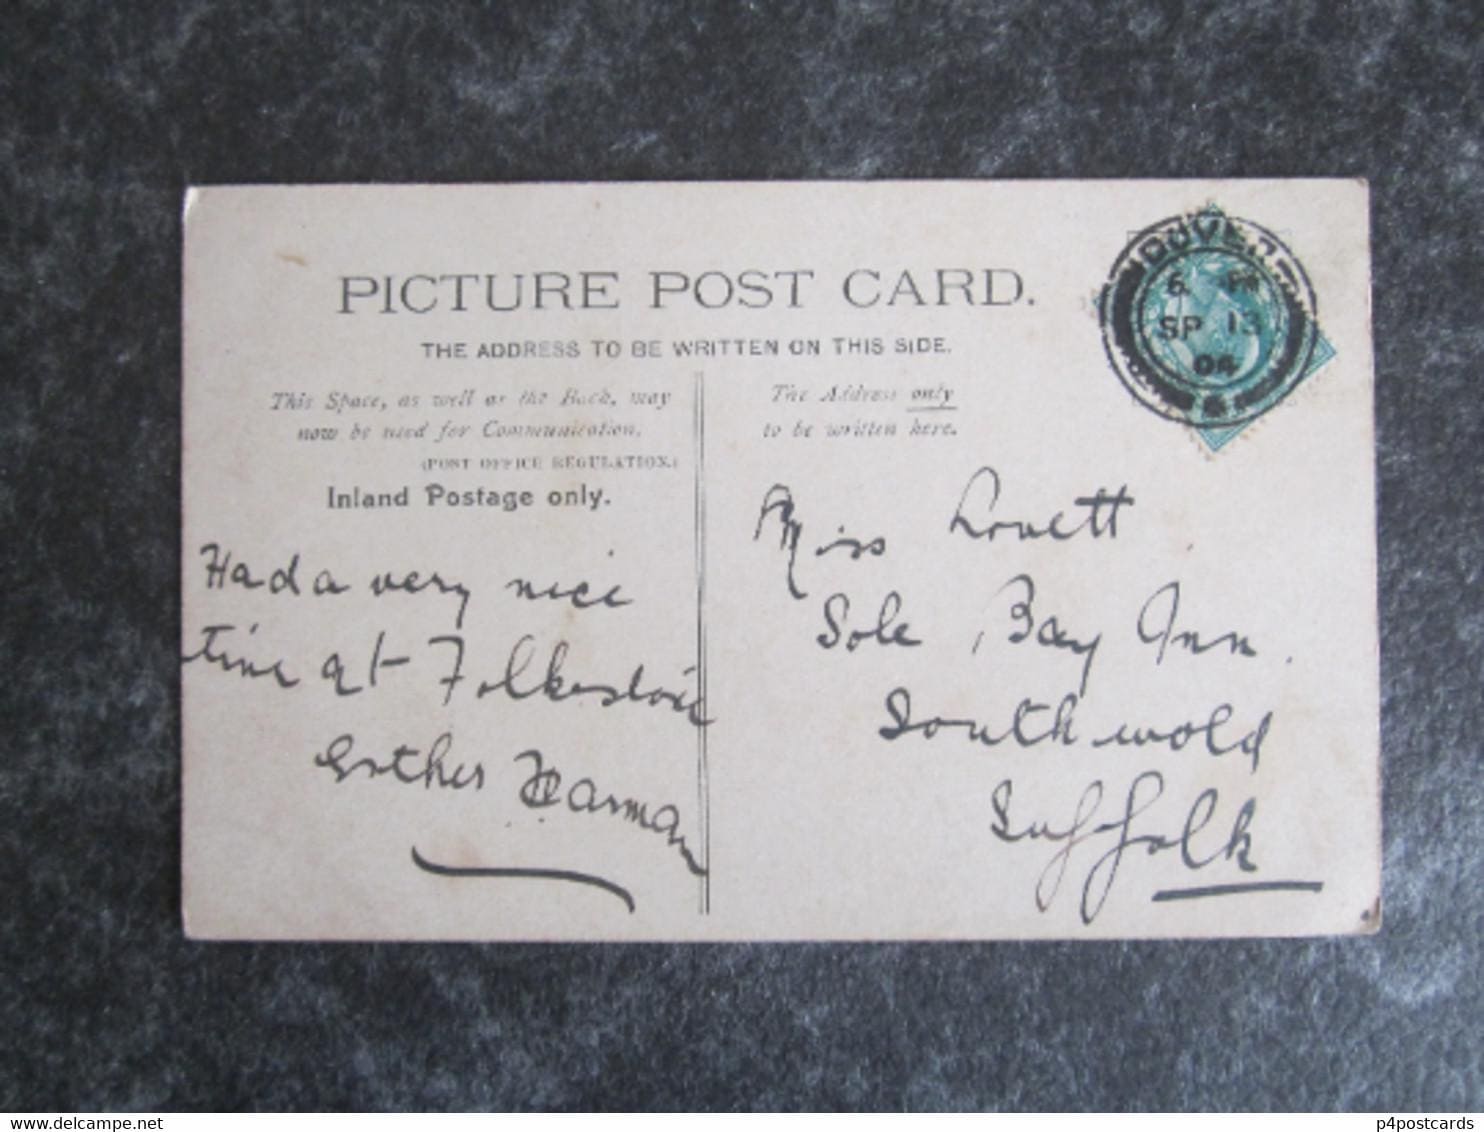 PICTURE POST CARD.
THE ADDRESS TO BE WRITTEN ON THIS SIDE.
This Space, as well as the Back, may
now be used for Communication.
(POST OFFICE REGULATION.)
Inland Postage only.
The Address only
to be written here.
DOVER
6 PM
SP 13
04
Had a very nice
time at Folkestone
Esther Harman
Miss Lovett
Sole Bay Inn.
Southwold
Suffolk
delcampe.net
p4postcards